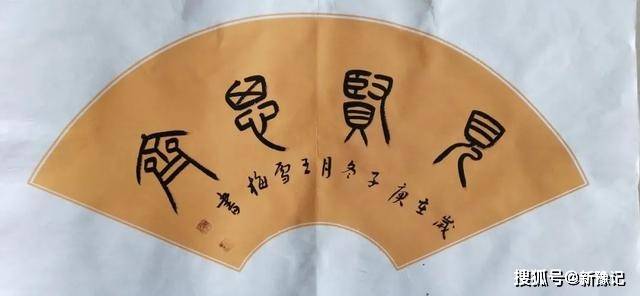 見賢思齊
歲在庚子冬月王雪梅書
搜狐号@新豫记